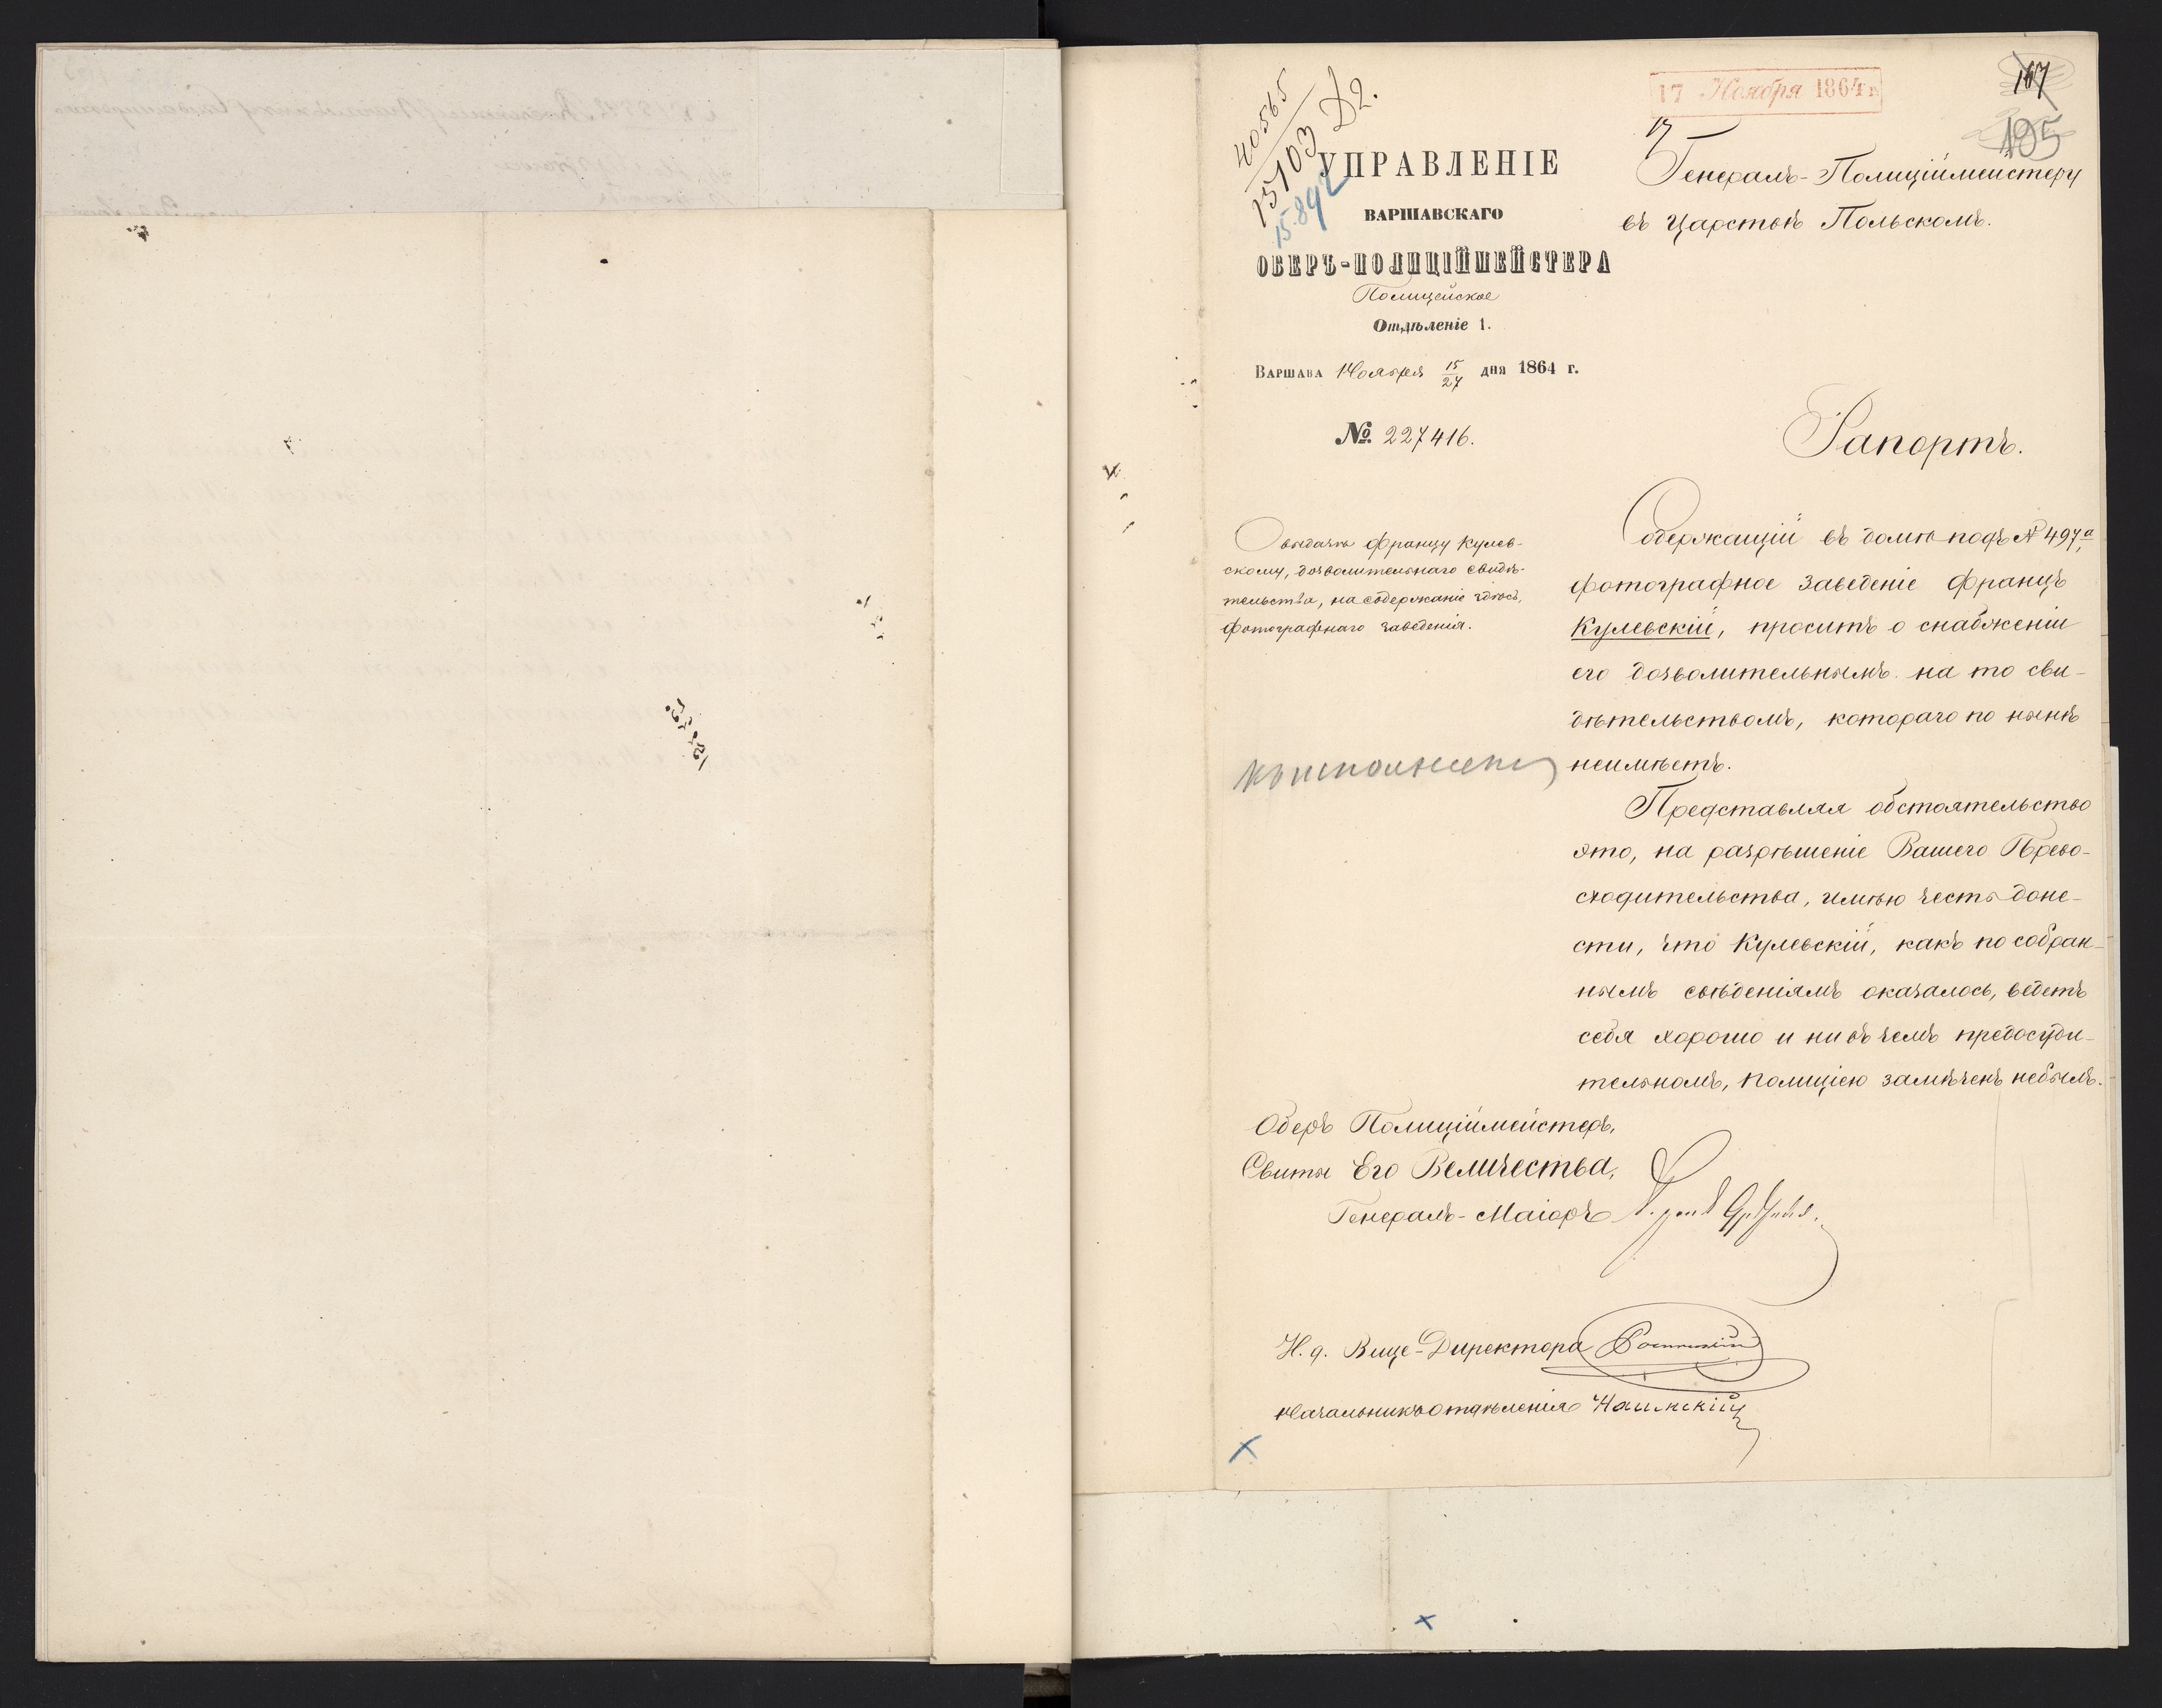 167
195
17 Ноября 1864 г
40565
15703 Д2.
15.892
УПРАВЛЕНІЕ
ВАРШАВСКАГО
ОБЕРЪ-ПОЛИЦІЙМЕЙСТЕРА
Полицейское
Отдѣленіе 1.
Варшава Ноября 15/27 дня 1864 г.
№ 227416.
Генералъ-Полиціймейстеру
въ Царствѣ Польскомъ.
Рапортъ.
О выдачѣ Францу Кулев-
скому, дозволительнаго свидѣ-
тельства, на содержаніе здѣсь,
фотографнаго заведенія.
Содержащій въ домѣ подъ № 497а,
фотографное заведеніе Францъ
Кулевскій, проситъ о снабженіи
его дозволительнымъ на то сви-
дѣтельствомъ, котораго по нынѣ
неимѣетъ.
Представляя обстоятельство
это, на разрѣшеніе Вашего Прево-
сходительства, имѣю честь доне-
сти, что Кулевскій, какъ по собран-
нымъ свѣдѣніямъ оказалось, ведетъ
себя хорошо и ни въ чемъ предосуди-
тельномъ, полиціею замѣченъ небылъ.
Оберъ Полиціймейстеръ,
Свиты Его Величества,
Генералъ-Маіоръ
И. д. Вице-Директора
Начальникъ Отдѣленія